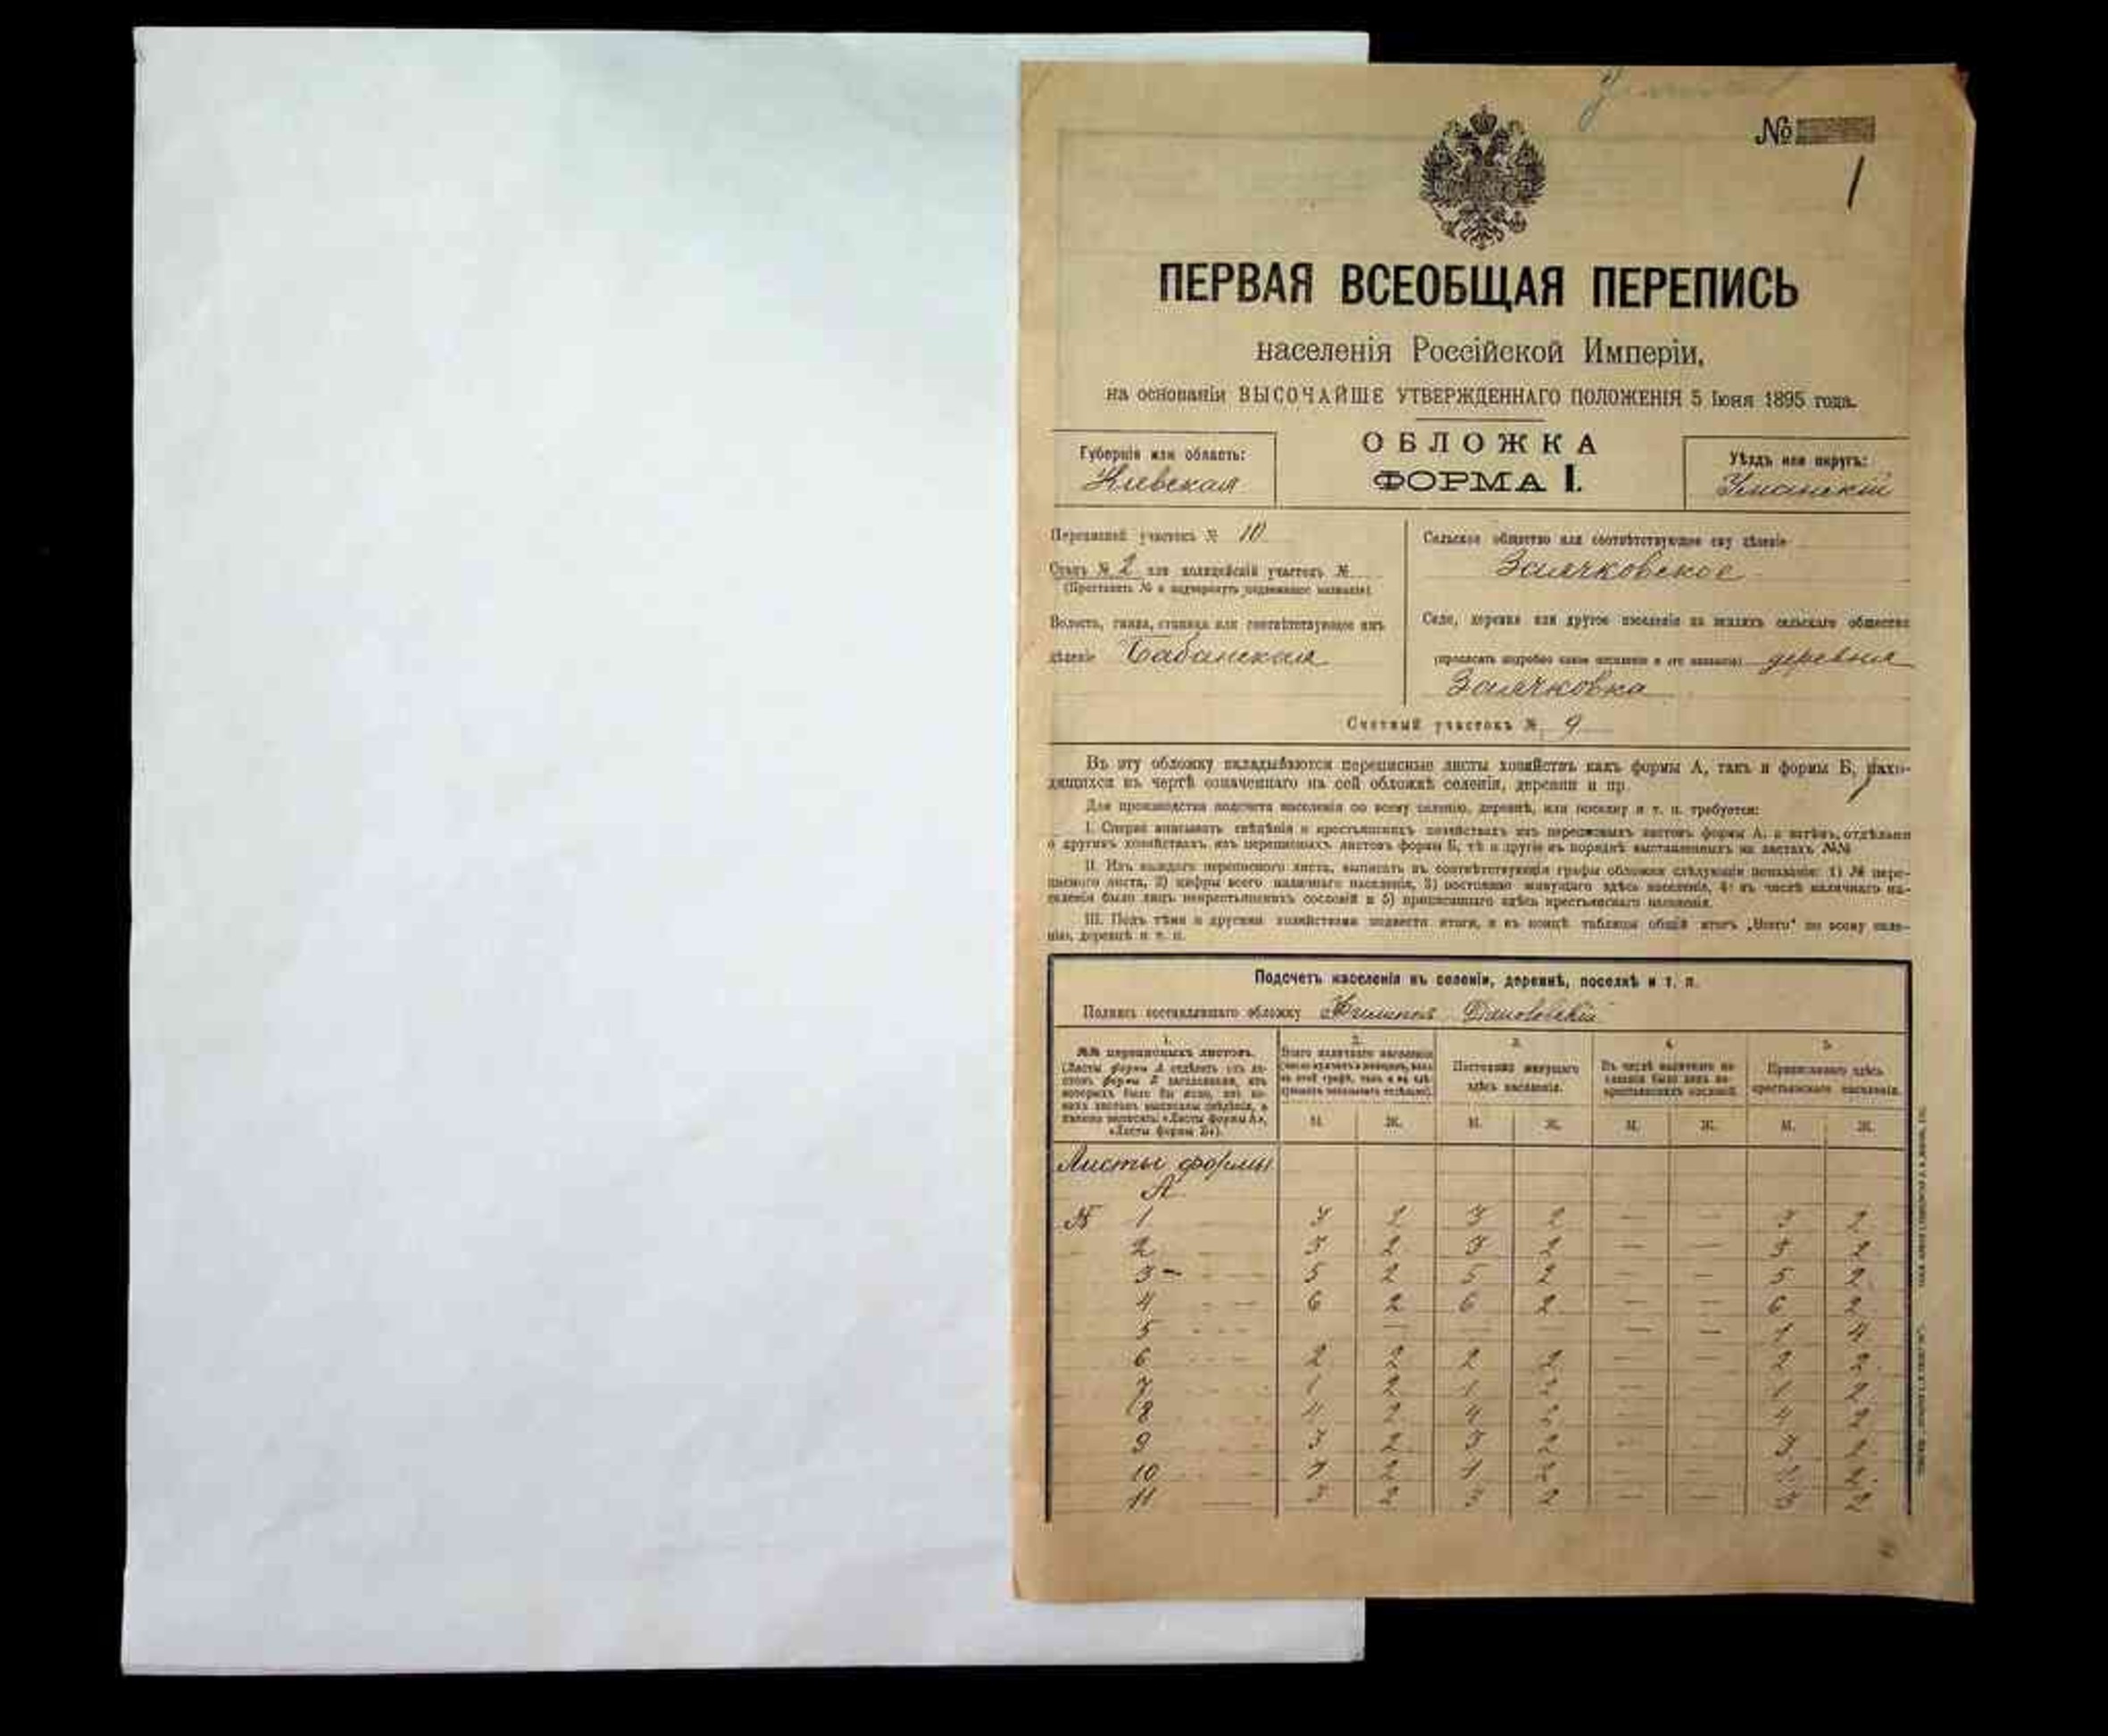 №
1
ПЕРВАЯ ВСЕОБЩАЯ ПЕРЕПИСЬ
населенія Россійской Имперіи,
на основаніи ВЫСОЧАЙШЕ УТВЕРЖДЕННАГО ПОЛОЖЕНІЯ 5 Іюня 1895 года.
ОБЛОЖКА
ФОРМА I.
Губернія или область:
Кіевская
Уѣздъ или округъ:
Уманскій
Переписной участокъ № 10
Станъ № 2 или полицейскій участокъ №
(Проставить № и подчеркнуть подлежащее названіе)
Волость, гмина, станица или соотвѣтствующее имъ
дѣленіе Бабанская
Сельское общество или соотвѣтствующее ему дѣленіе
Заячковское
Село, деревня или другое поселеніе на земляхъ сельскаго общества
(прописать подробно какое поселеніе и его названіе) деревня
Заячковка
Счетный участокъ № 9
Въ эту обложку вкладываются переписные листы хозяйствъ какъ формы А, такъ и формы Б, нахо-
дящихся въ чертѣ означеннаго на сей обложкѣ селенія, деревни и пр.
Для производства подсчета населенія по всему селенію, деревнѣ, или поселку и т. п. требуется:
I. Сперва вписывать свѣдѣнія о крестьянскихъ хозяйствахъ изъ переписныхъ листовъ формы А, а затѣмъ, отдѣльно
о другихъ хозяйствахъ изъ переписныхъ листовъ формы Б, тѣ и другіе въ порядкѣ выставленныхъ на листахъ №№
II. Изъ каждаго переписного листа, выписать въ соотвѣтствующія графы обложки слѣдующія показанія: 1) № пере-
писного листа, 2) цифры всего наличнаго населенія, 3) постоянно живущаго здѣсь населенія, 4) въ числѣ наличнаго на-
селенія было лицъ некрестьянскихъ сословій и 5) приписаннаго здѣсь крестьянскаго населенія.
III. Подъ тѣми и другими хозяйствами подвести итоги, и въ концѣ таблицы общій итогъ „Всего" по всему селе-
нію, деревнѣ и т. п.
Подсчетъ населенія въ селеніи, деревнѣ, поселкѣ и т. п.
Подпись составлявшаго обложку
1. 2. 3. 4. 5.
№№ переписныхъ листовъ.
(Листы формы А отдѣлить отъ ли-
стовъ формы Б заголовками, изъ
которыхъ было бы ясно, изъ ка-
кихъ листовъ выписаны свѣдѣнія, а
именно написать: «Листы формы А»,
«Листы формы Б»).
Всего наличнаго населенія
Постоянно живущаго
здѣсь населенія.
Въ числѣ наличнаго на-
селенія было лицъ не-
крестьянскихъ сословій.
Приписаннаго здѣсь
крестьянскаго населенія.
М. Ж. М. Ж. М. Ж. М. Ж.
Листы формы
А
№ 1 3 2 3 2 — — 3 2
2 3 2 3 2 — — 3 2
3 – 5 2 5 2 — — 5 2
4 6 2 6 2 — — 6 2
5 — — — — — — 4
6 2 2 2 2 — — 2 2
7 1 2 1 2 — — 1 2
8 4 2 4 2 — — 4 2
9 3 2 3 2 — — 3 2
10 2 2 — — 2
11 3 2 3 2 — — 3 2